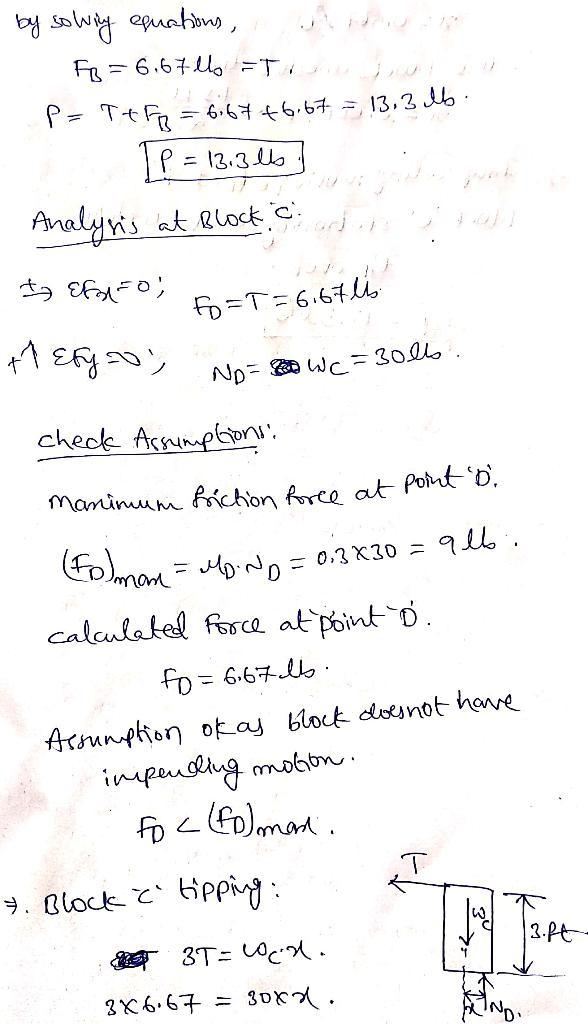 by solving equations,
FB = 6.67 lb = T.
P = T + FB = 6.67 + 6.67 = 13.3 lb.
P = 13.3 lb.
Analysis at Block 'C'.
+→ ΣFx = 0; FD = T = 6.67 lb
+↑ ΣFy = 0; ND = WC = 30 lb.
check Assumptions:
maximum friction force at point 'D'.
(FD)max = μD.ND = 0.3 × 30 = 9 lb.
calculated force at point 'D'.
FD = 6.67 lb.
Assumption ok as block doesnot have
impending motion.
FD < (FD)max.
⇒. Block 'C' tipping:
T
Wc
3.ft
3T = Wc.x.
3 × 6.67 = 30 × x.
x
ND.